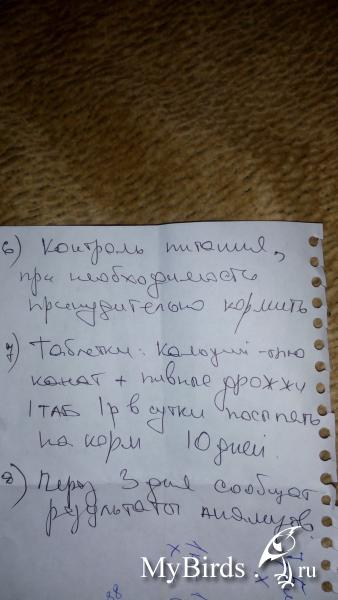 6) Контроль питания,
при необходимость
принудительно кормить
7) Таблетки: Кальций-глю
канат + пивные дрожжи
1 таб 1 р в сутки посыпать
на корм 10 дней.
8) Через 3 дня сообщат
результаты анализов.
MyBirds.ru